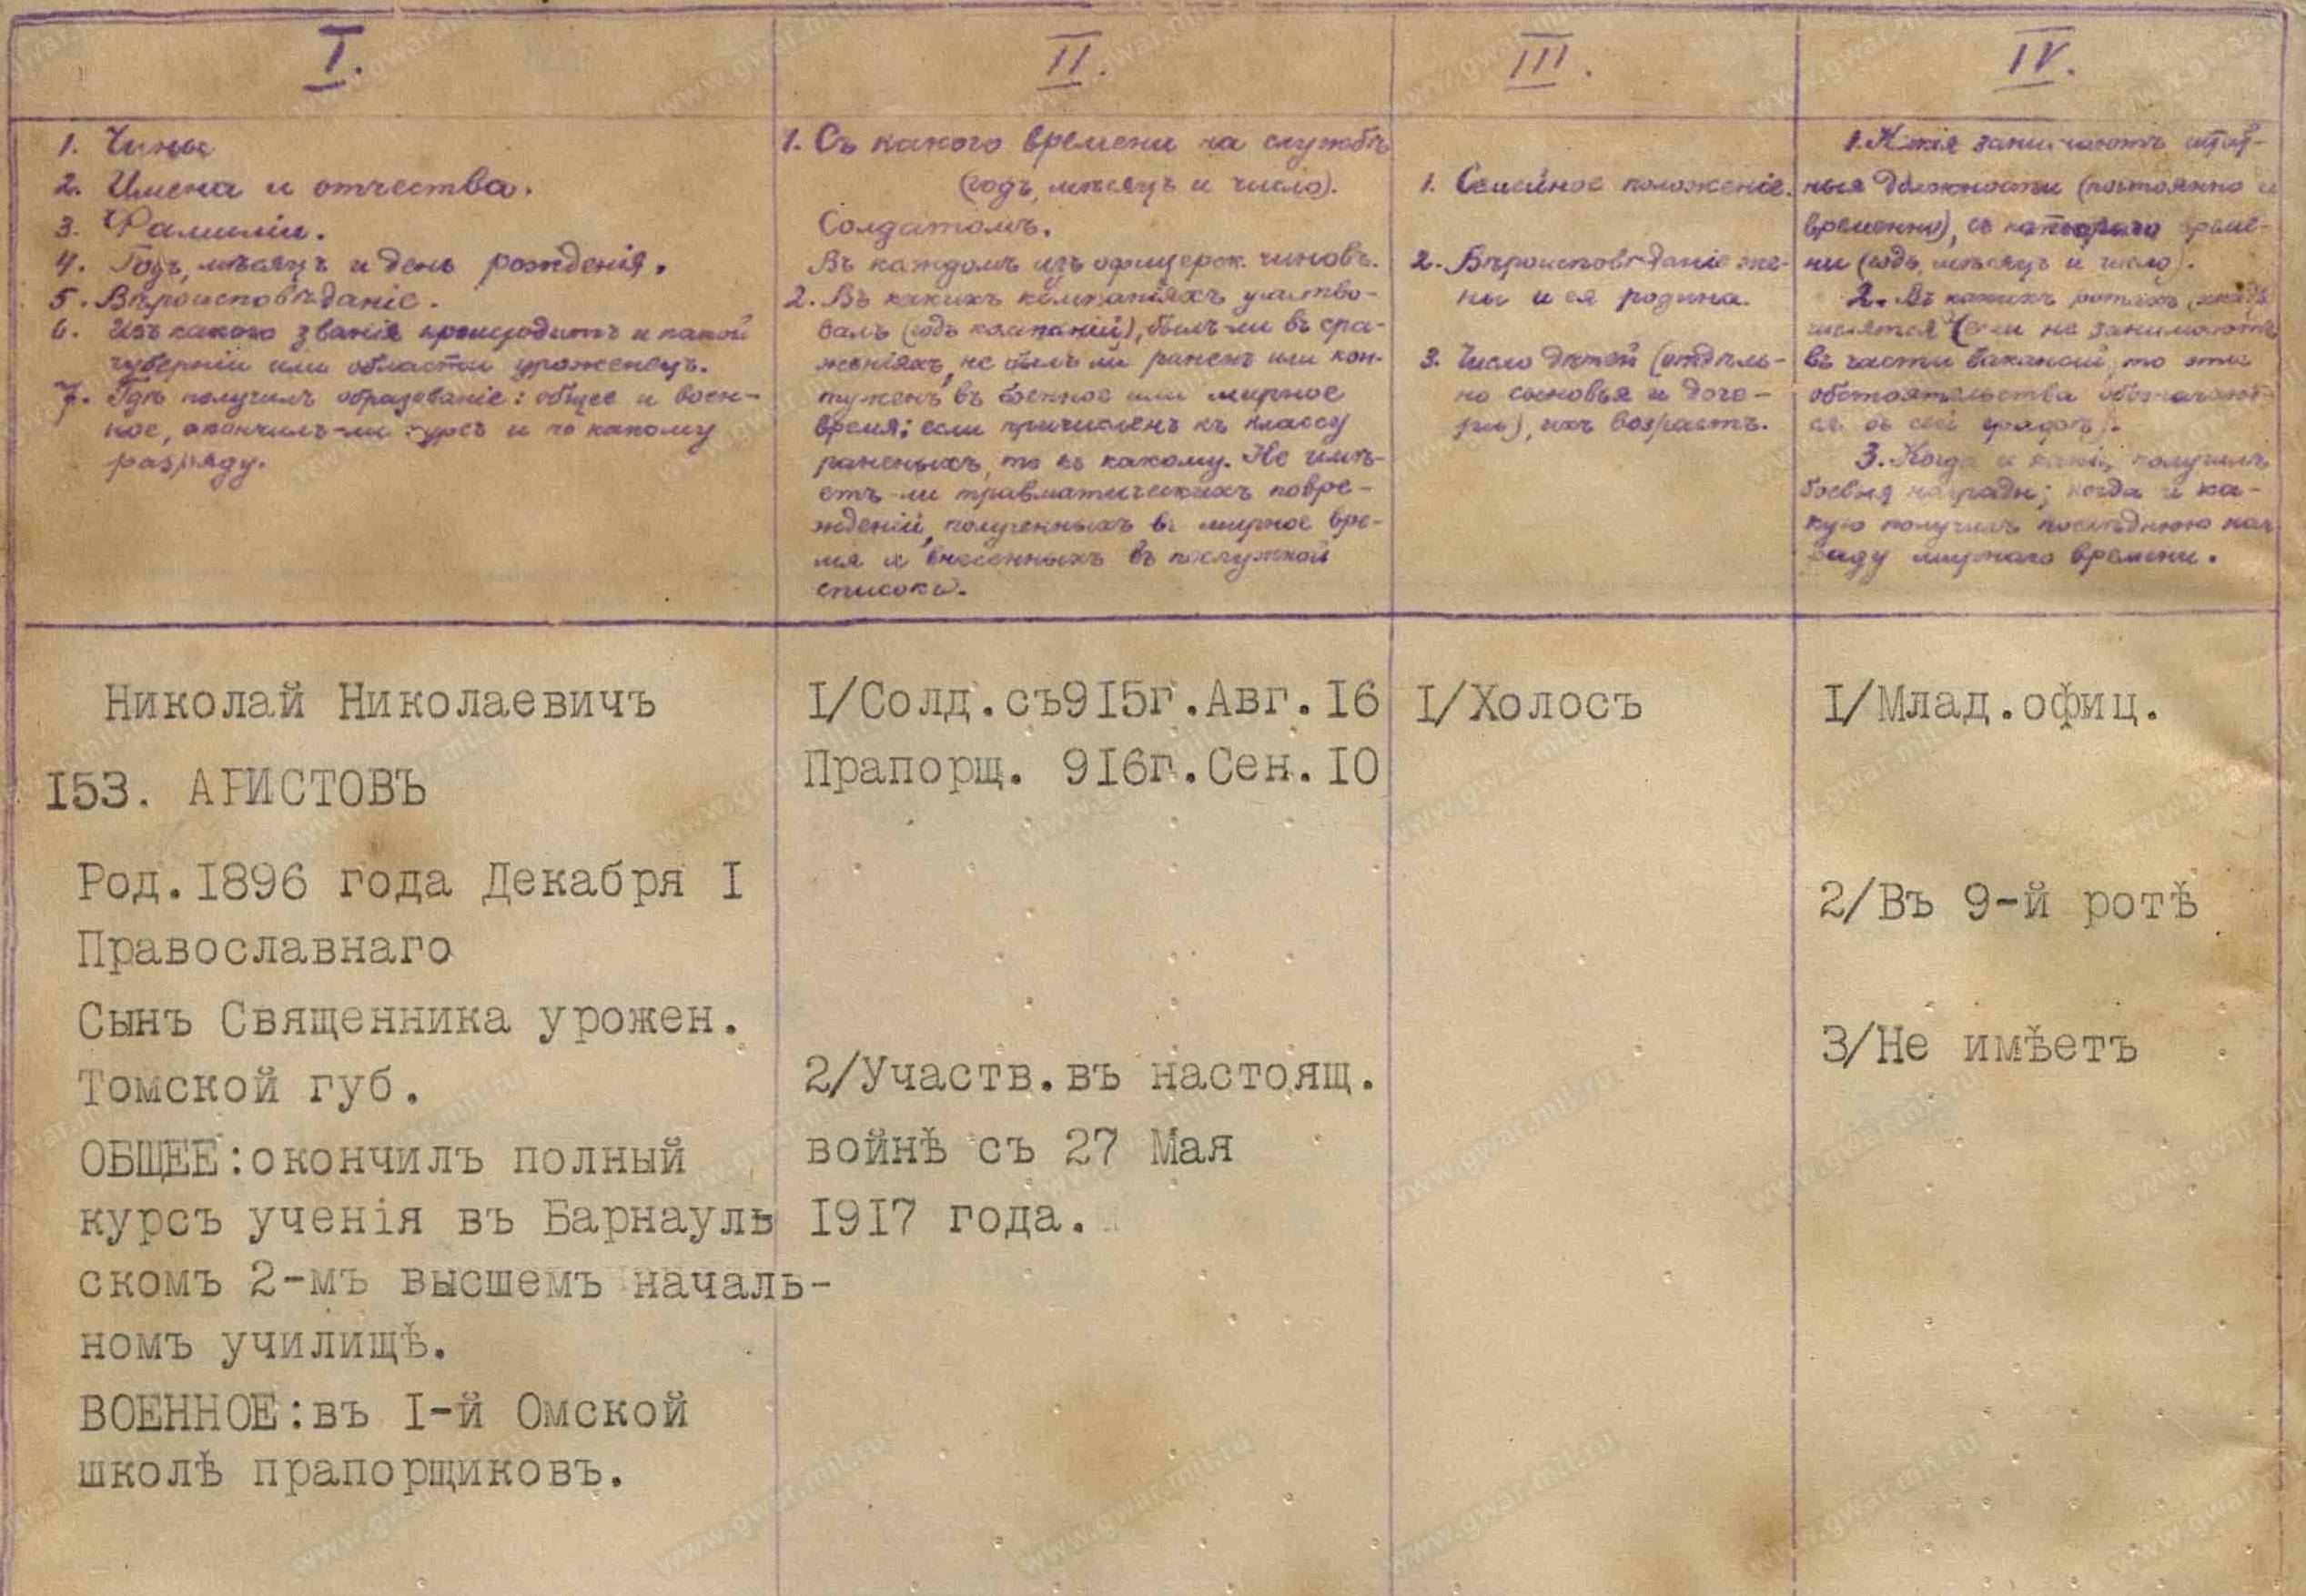 I.
1. Чины
2. Имена и отчества.
3. Фамиліи.
4. Годъ, мѣсяцъ и день рожденія.
5. Вѣроисповѣданіе.
6. Изъ какого званія происходитъ и какой
губерніи или области уроженецъ.
7. Гдѣ получилъ образованіе: общее и воен-
ное, окончилъ-ли курсъ и по какому
разряду.
II.
1. Съ какого времени на службѣ
(годъ, мѣсяцъ и число).
Солдатомъ.
Въ каждомъ изъ офицерск. чиновъ.
2. Въ какихъ компаніяхъ участво-
валъ (годъ компаній), былъ-ли въ сра-
женіяхъ, не былъ ли раненъ или кон-
туженъ въ военное или мирное
время; если причисленъ къ классу
раненыхъ, то къ какому. Не имѣ-
етъ-ли травматическихъ повре-
жденій, полученныхъ въ мирное вре-
мя и внесенныхъ въ послужной
списокъ.
III.
1. Семейное положеніе.
2. Вѣроисповѣданіе же-
ны и ея родина.
3. Число дѣтей (отдѣль-
но сыновья и доче-
ри), ихъ возрастъ.
IV.
1. Какія занимаютъ штат-
ныя должности (постоянно и
временно), съ котораго време-
ни (годъ, мѣсяцъ и число).
2. Въ какихъ ротахъ
числятся (если не занимаютъ
въ части вакансій, то эти
обстоятельства обозначают-
ся въ сей графѣ).
3. Когда и какія получилъ
боевыя награды; когда и ка-
кую получилъ послѣднюю наг-
раду мирнаго времени.
Николай Николаевичъ
153. АРИСТОВЪ
Род.1896 года Декабря I
Православнаго
Сынъ Священника урожен.
Томской губ.
ОБЩЕЕ:окончилъ полный
курсъ ученія въ Барнауль
скомъ 2-мъ высшемъ началь-
номъ училищѣ.
ВОЕННОЕ:въ I-й Омской
школѣ прапорщиковъ.
I/Солд.съ915г.Авг.I6
Прапорщ. 916г.Сен.IO
2/Участв.въ настоящ.
войнѣ съ 27 Мая
I9I7 года.
I/Холосъ
I/Млад.офиц.
2/Въ 9-й ротѣ
3/Не имѣетъ
www.gwar.mil.ru